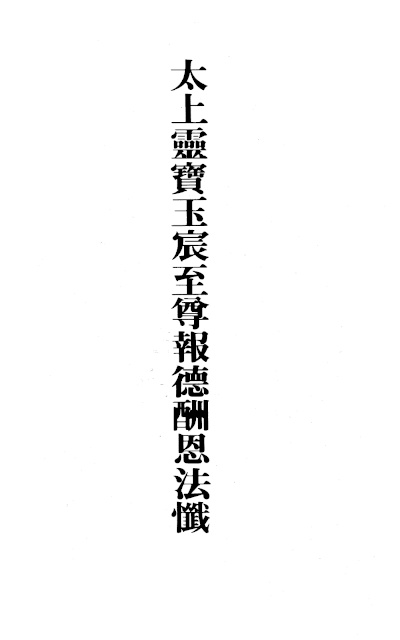 太上靈寶玉宸至尊報德酬恩法懺